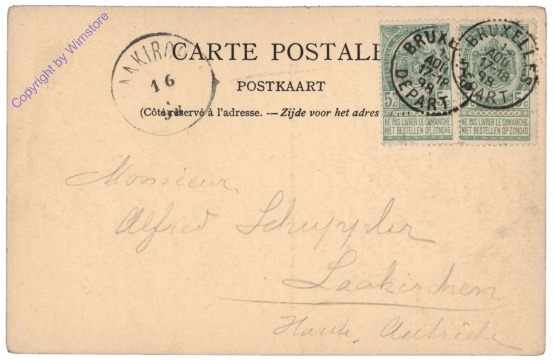 Copyright by Wimstore
CARTE POSTALE
POSTKAART
(Côté réservé à l'adresse. — Zijde voor het adres
AAKIRC
16
BRUXELLES
1
AOU
17-18
98
DEPART
BRUXELLES
1
AOU
17-18
98
DEPART
5c
5c
NE PAS LIVRER LE DIMANCHE
NIET BESTELLEN OP ZONDAG
NE PAS LIVRER LE DIMANCHE
NIET BESTELLEN OP ZONDAG
Monsieur
Alfred Schuppler
Laakirchen
Haute Autriche